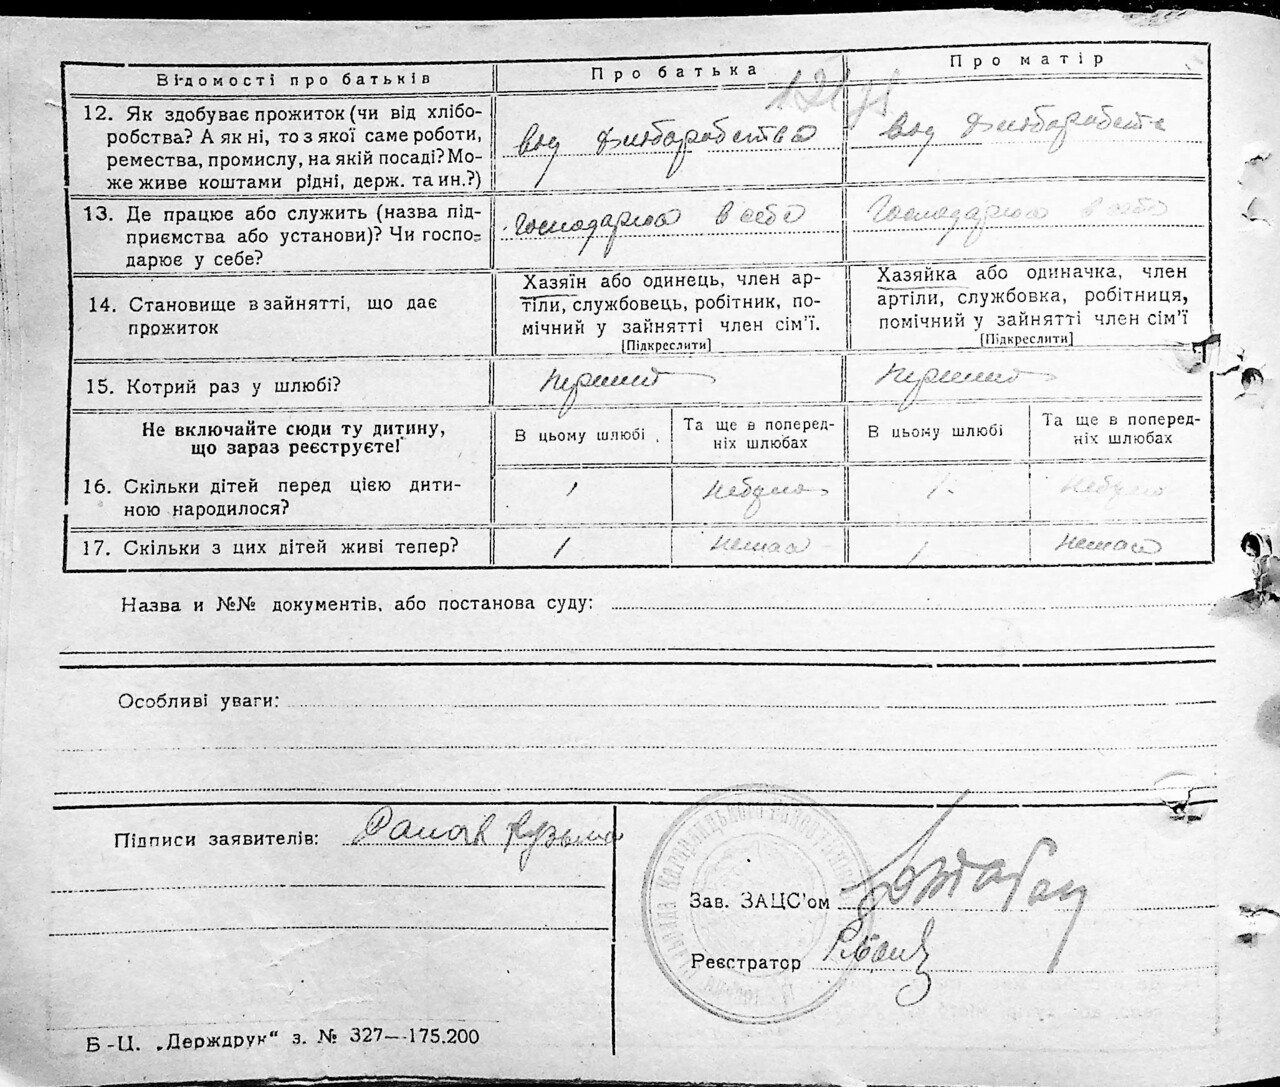 Відомості про батьків
Про батька
Про матір
12. Як здобуває прожиток (чи від хлібо-
робства? А як ні, то з якої саме роботи,
ремества, промислу, на якій посаді? Мо-
же живе коштами рідні, держ. та ин.?)
від хліборобства
від хліборобств
13. Де працює або служить (назва під-
приємства або установи)? Чи госпо-
дарює у себе?
Господарює в себе
Господарює в себе
14. Становище в зайнятті, що дає
прожиток
Хазяїн або одинець, член ар-
тіли, службовець, робітник, по-
мічний у зайнятті член сім’ї.
[Підкреслити]
Хазяйка або одиначка, член
артіли, службовка, робітниця,
помічний у зайнятті член сім’ї
[Підкреслити]
15. Котрий раз у шлюбі?
перший
перший
Не включайте сюди ту дитину,
що зараз реєструєте!
В цьому шлюбі
Та ще в поперед-
ніх шлюбах
В цьому шлюбі
Та ще в поперед-
ніх шлюбах
16. Скільки дітей перед цією дити-
ною народилося?
1
небуло
1
небуло
17. Скільки з цих дітей живі тепер?
1
немає
1
немає
Назва и №№ документів, або постанова суду:
Особливі уваги:
Підписи заявителів:
Кузьма
Зав. ЗАЦС’ом
Реєстратор
Б-Ц. „Держдрук“ з. № 327—175.200